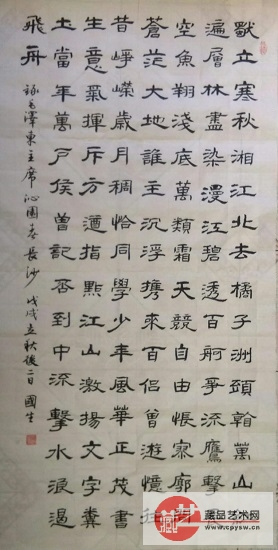 獨立寒秋湘江北去橘子洲頭看萬山
遍層林盡染漫江碧透百舸爭流鷹擊
空魚翔淺底萬類霜天競自由悵寥廓
蒼茫大地誰主沉浮攜來百侶曾遊憶往
昔崢嶸歲月稠恰同學少年風華正茂書
生意氣揮斥方遒指點江山激揚文字糞
土當年萬戶侯曾記否到中流擊水浪遏
飛舟
錄毛澤東主席沁園春長沙 戊戌立秋後二日 國生
藏品艺术网
www.cpysw.cn